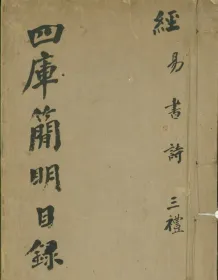 經 易 書 詩 三禮
四庫簡明目録